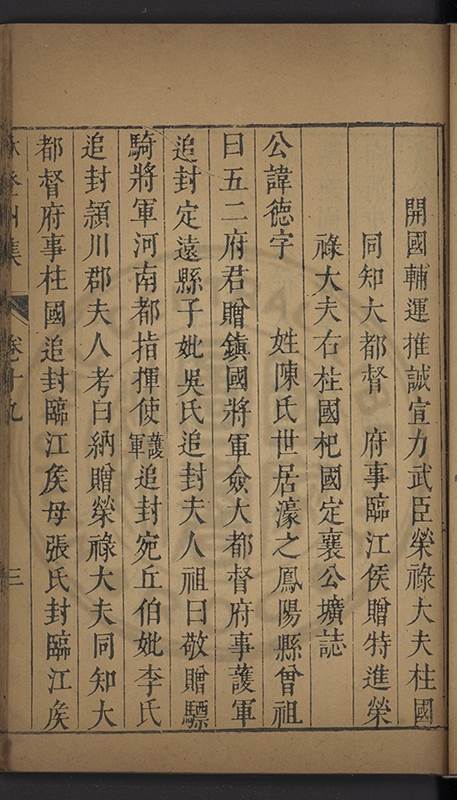 開國輔運推誠宣力武臣榮祿大夫柱國
同知大都督 府事臨江侯贈特進榮
祿大夫右柱國杞國定襄公壙誌
公諱德字 姓陳氏世居濠之鳳陽縣曾祖
曰五二府君贈鎮國將軍僉大都督府事護軍
追封定遠縣子妣吳氏追封夫人祖曰敬贈驃
騎將軍河南都指揮使護軍追封宛丘伯妣李氏
追封潁川郡夫人考曰納贈榮祿大夫同知大
都督府事柱國追封臨江侯母張氏封臨江侯
集 卷十九 三